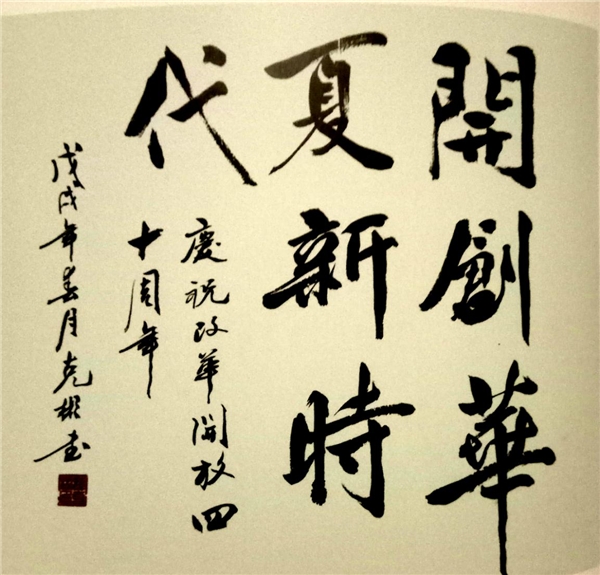 開創華
夏新時
代
慶祝改革開放四
十周年
戊戌年春月克彬书